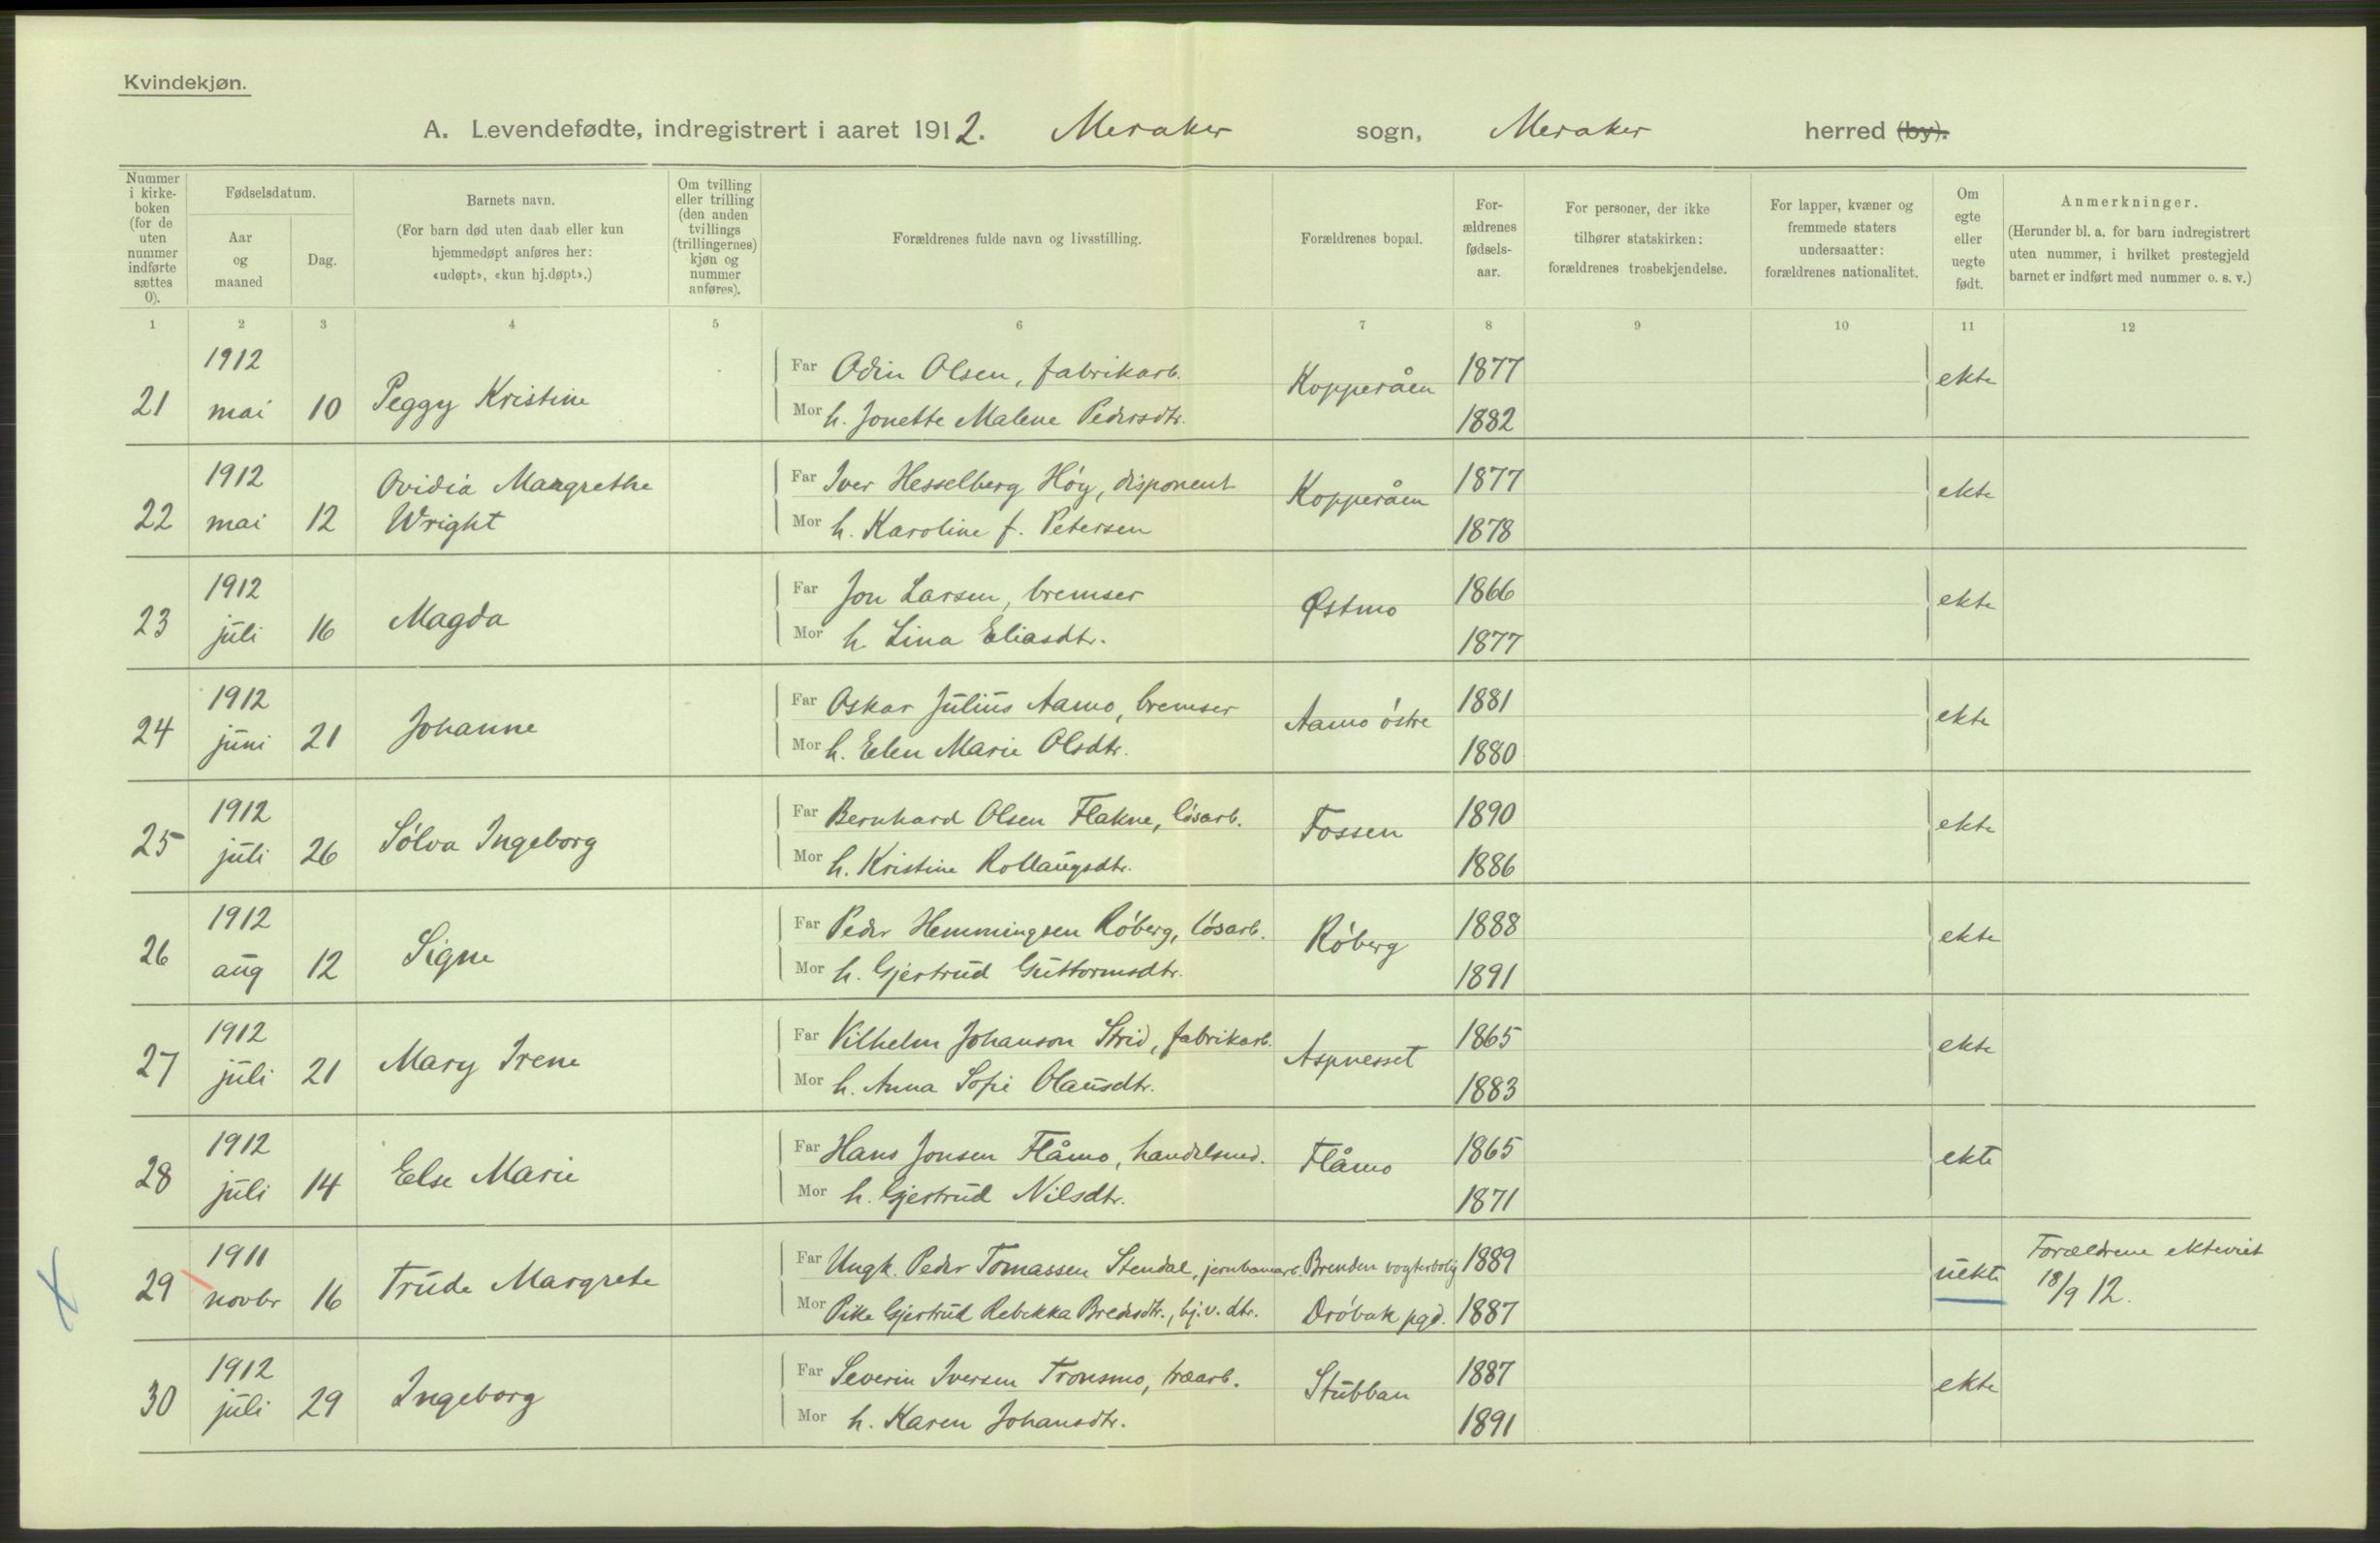 Kvindekjøn.
A. Levendefødte, indregistrert i aaret 1912. Meraker sogn, Meraker herred (by).
Nummer i kirkeboken (for de uten nummer indførte sættes 0).
Fødselsdatum.
Aar og maaned
Dag.
Barnets navn.
(For barn død uten daab eller kun hjemmedøpt anføres her: «udøpt», «kun hj.døpt».)
Om tvilling eller trilling (den anden tvillings (trillingernes) kjøn og nummer anføres).
Forældrenes fulde navn og livsstilling.
Forældrenes bopæl.
Forældrenes fødselsaar.
For personer, der ikke tilhører statskirken: forældrenes trosbekjendelse.
For lapper, kvæner og fremmede staters undersaatter: forældrenes nationalitet.
Om egte eller uegte født.
Anmerkninger.
(Herunder bl. a. for barn indregistrert uten nummer, i hvilket prestegjeld barnet er indført med nummer o. s. v.)
1 2 3 4 5 6 7 8 9 10 11 12
21 1912 mai 10 Peggy Kristine
Far Odin Olsen, fabrikarb. Kopperåen 1877 ekte
Mor h. Jonette Malene Pedersdtr. 1882
22 1912 mai 12 Ovidia Margrethe Wright
Far Iver Hesselberg Höy, disponent Kopperåen 1877 ekte
Mor h. Karoline f. Petersen 1878
23 1912 juli 16 Magda
Far Jon Larsen, bremser Østmo 1866 ekte
Mor h. Lina Eliasdtr. 1877
24 1912 juni 21 Johanne
Far Oskar Julius Aamo, bremser Aamo östre 1881 ekte
Mor h. Elen Marie Olsdtr. 1880
25 1912 juli 26 Sölva Ingeborg
Far Bernhard Olsen Flakne, lösarb. Fossen 1890 ekte
Mor h. Kristine Rollaugsdtr. 1886
26 1912 aug 12 Signe
Far Peder Hemmingsen Röberg, lösarb. Röberg 1888 ekte
Mor h. Gjertrud Guttormsdtr. 1891
27 1912 juli 21 Mary Irene
Far Vilhelm Johanson Strid, fabrikarb. Aspnesset 1865 ekte
Mor h. Anna Sofie Olausdtr. 1883
28 1912 juli 14 Else Marie
Far Hans Jonsen Flåmo, handelsmd. Flåmo 1865 ekte
Mor h. Gjertrud Nilsdtr. 1871
29 1911 novbr 16 Trude Margrete
Far Ungk. Peder Tomassen Stendal, jernbanearb. Brenden vogterbolig 1889 uekte Forældrene ekteviet
Mor Pike Gjertrud Rebekka Bredesdtr., hj.v. dtr. Dröbak pgd. 1887 18/9 12.
30 1912 juli 29 Ingeborg
Far Severin Iversen Tronsmo, træarb. Stubban 1887 ekte
Mor h. Karen Johansdtr. 1891